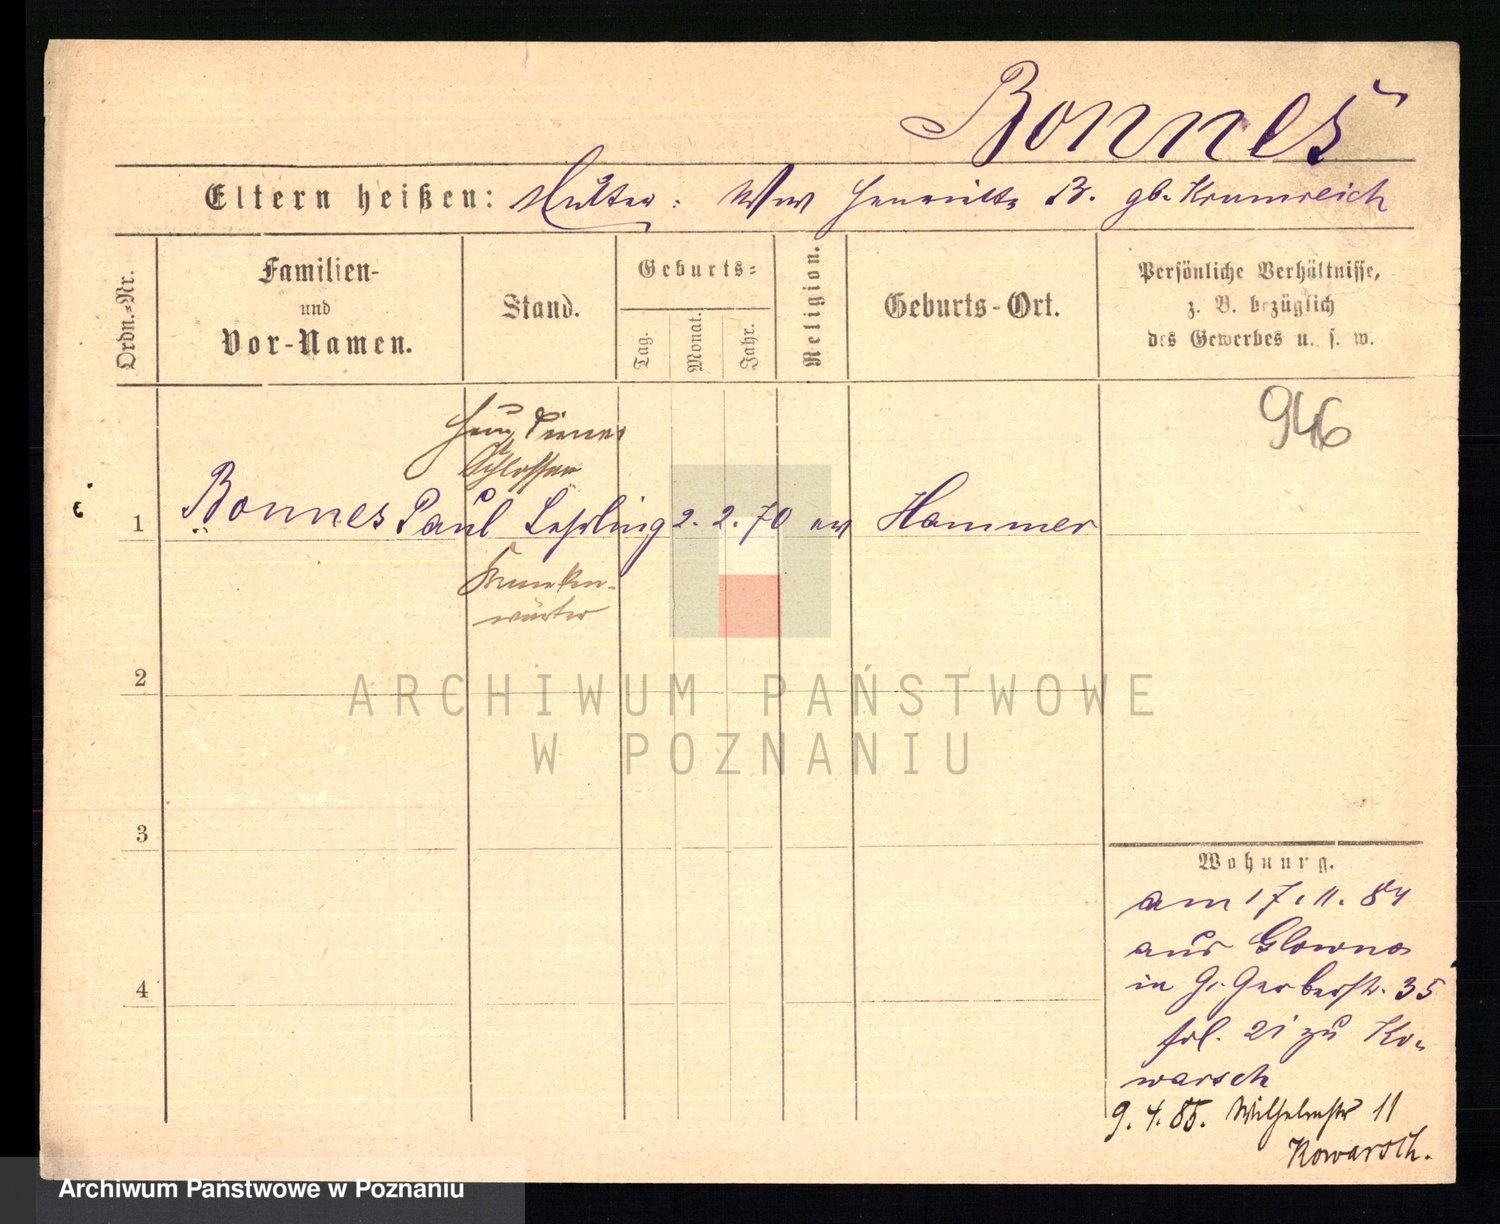 Bonnes
Eltern heißen: Mutter: Wwe Henriette B. gb. Krumreich
Ordn.-Nr.
Familien-
und
Vor-Namen.
Stand.
Geburts-
Tag.
Monat.
Jahr.
Religion.
Geburts-Ort.
Persönliche Verhältnisse,
z. B. bezüglich
des Gewerbes u. s. w.
946
Hausdiener
Schlosser
1 Bonnes Paul Lehrling 2. 2. 70 ev Hammer
Kranken-
wärter
2
3
4
Wohnung.
am 17.11.84
aus Glowno
in Gr. Gerberstr. 35
fol. 21 zu Ko-
warsch
9.4.85. Wilhelmstr 11
Kowarsch.
ARCHIWUM PAŃSTWOWE
W POZNANIU
Archiwum Państwowe w Poznaniu